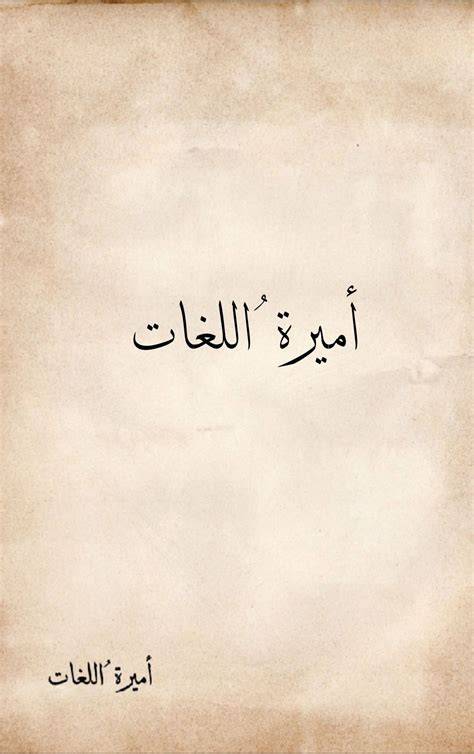 أميرة ُاللغات
أميرة ُاللغات